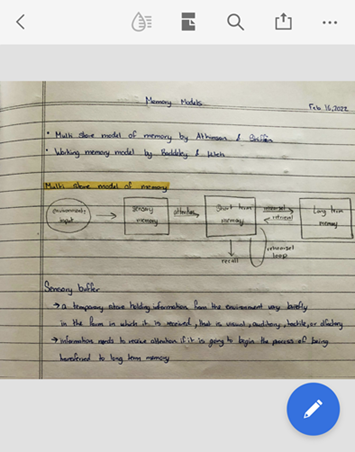 Memory Models
Feb 16, 2022
• Multi store model of memory by Atkinson &
• Working memory model by Baddeley &
Multi store model of memory
environmental input
sensory memory
attention
Short term memory
rehearsal
retrieval
Long term memory
recall
rehearsal loop
Sensory buffer
→ a temporary store holding information from the environment very briefly
in the form in which it is received, that is visual, auditory, tactile, or olfactory
→ information needs to receive attention if it is going to begin the process of being
transferred to long term memory